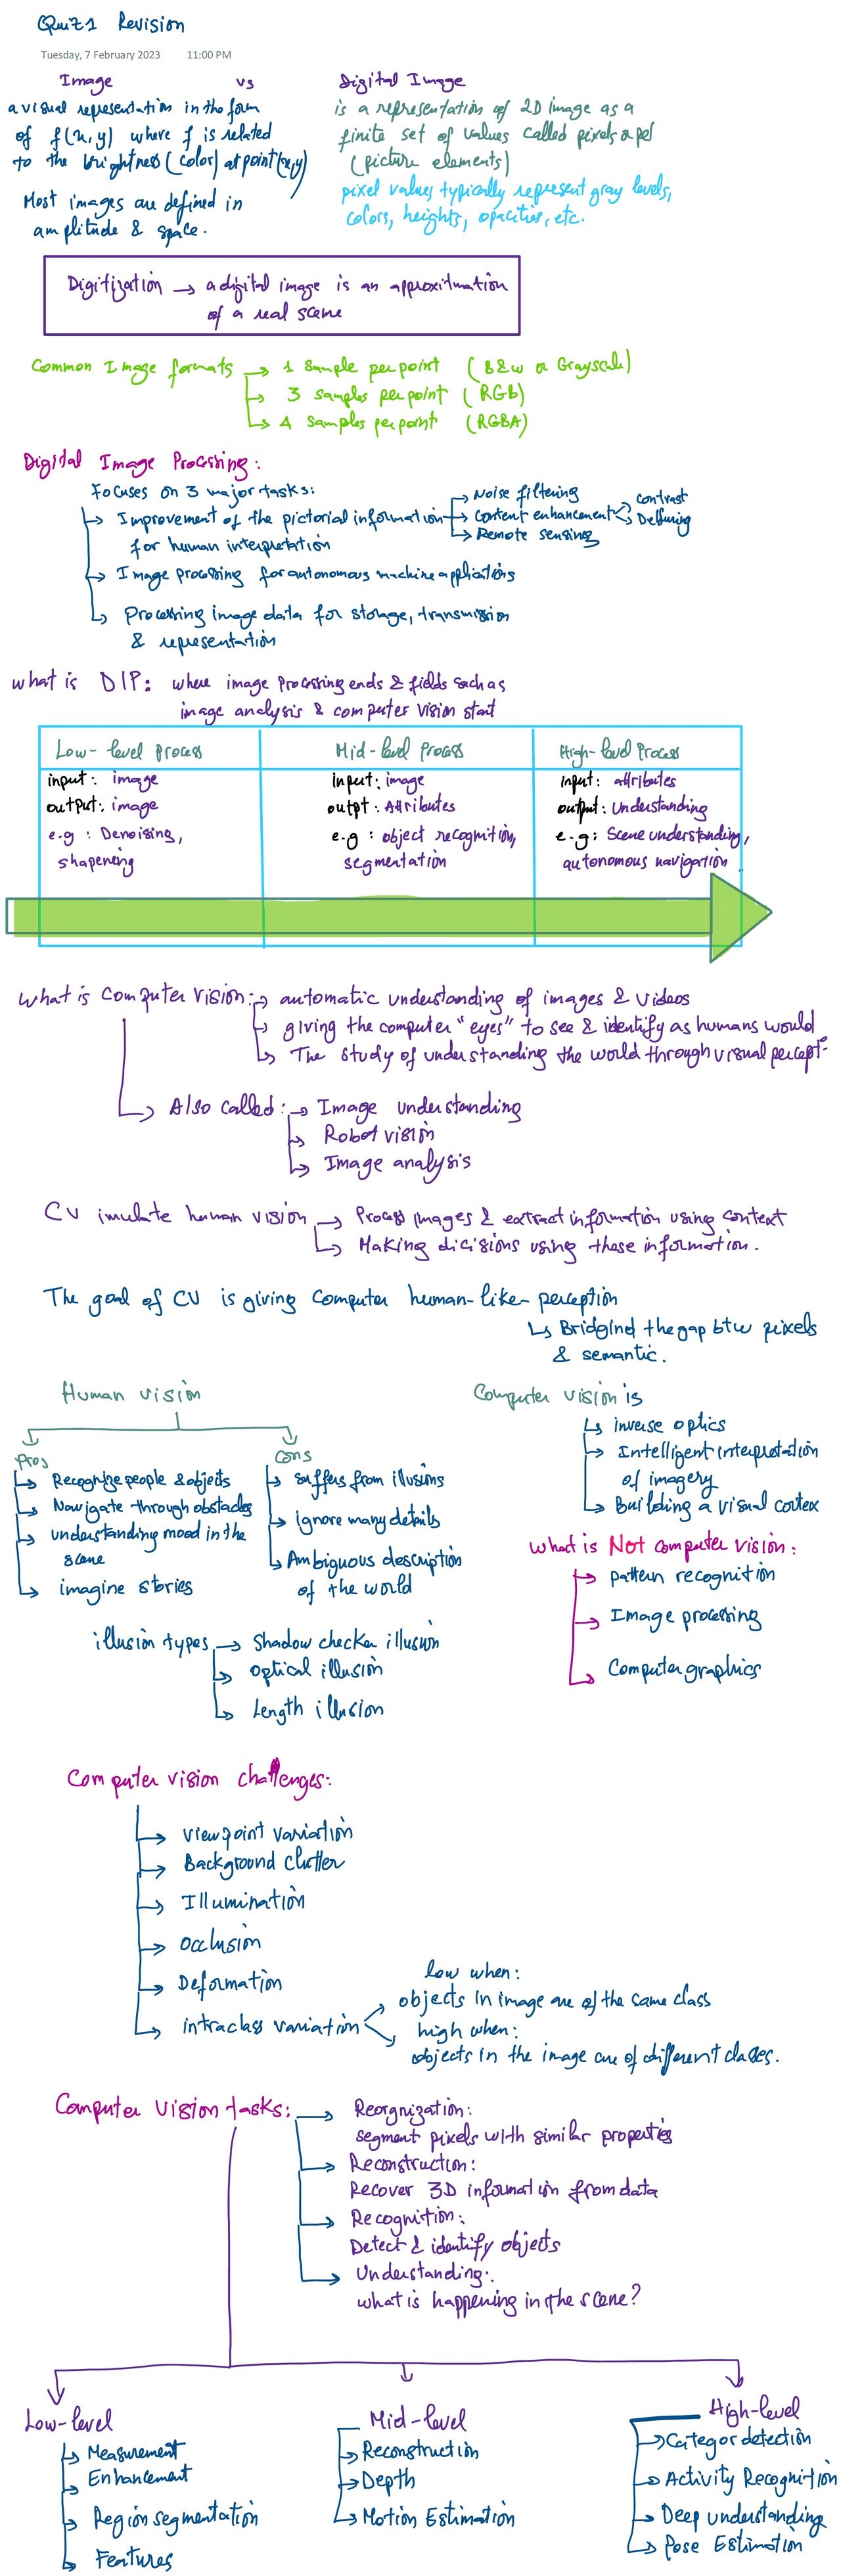 Quiz1 Revision
Tuesday, 7 February 2023 11:00 PM
Image vs Digital Image
a visual representation in the form
of f(x,y) where f is related
to the brightness (color) at point (x,y)
Most images are defined in
amplitude & space.
is a representation of 2D image as a
finite set of values called pixels or pel
(picture elements)
pixel values typically represent gray levels,
colors, heights, opacities, etc.
Digitization → a digital image is an approximation
of a real scene
Common Image formats → 1 Sample per point (B&W or Grayscale)
→ 3 samples per point (RGB)
→ 4 Samples per point (RGBA)
Digital Image Processing:
Focuses on 3 major tasks:
→ Improvement of the pictorial information
for human interpretation
→ Noise filtering
→ Content enhancement → Contrast
→ Debluring
→ Remote sensing
→ Image processing for autonomous machine applications
→ Processing image data for storage, transmission
& representation
what is DIP: where image processing ends & fields such as
image analysis & computer vision start
Low-level process
input: image
output: image
e.g: Denoising,
shapening
Mid-level process
input: image
outpt: Attributes
e.g: object recognition,
segmentation
High-level Process
input: attributes
output: Understanding
e.g: Scene understanding,
autonomous navigation
what is computer vision: → automatic understanding of images & videos
→ giving the computer "eyes" to see & identify as humans would
→ The study of understanding the world through visual percept-
→ Also called: → Image understanding
→ Robot vision
→ Image analysis
CV imulate human vision → Process images & extract information using context
→ Making dicisions using these information.
The goal of CV is giving Computer human-like-perception
↳ Bridgind the gap btw pixels
& semantic.
Human vision
pros
→ Recognize people & objects
→ Navigate through obstacles
→ understanding mood in the
scene
→ imagine stories
cons
→ suffers from illusions
→ ignore many details
→ Ambiguous description
of the world
illusion types → Shadow checker illusion
→ optical illusion
→ Length illusion
Computer vision is
↳ inverse optics
→ Intelligent interpretation
of imagery
→ Building a visual cortex
what is Not computer vision:
→ pattern recognition
→ Image processing
→ Computer graphics
Computer vision challenges:
→ viewpoint variation
→ Background Clutter
→ Illumination
→ Occlusion
→ Deformation
→ intraclass variation
low when:
objects in image are of the same class
high when:
objects in the image are of different classes.
Computer Vision tasks:
→ Reorgnization:
segment pixels with similar properties
→ Reconstruction:
Recover 3D information from data
→ Recognition:
Detect & identify objects
→ Understanding:
what is happening in the scene?
Low-level
→ Measurement
→ Enhancement
→ Region segmentation
→ Features
Mid-level
→ Reconstruction
→ Depth
→ Motion Estimation
High-level
→ Categor detection
→ Activity Recognition
→ Deep understanding
→ Pose Estimation